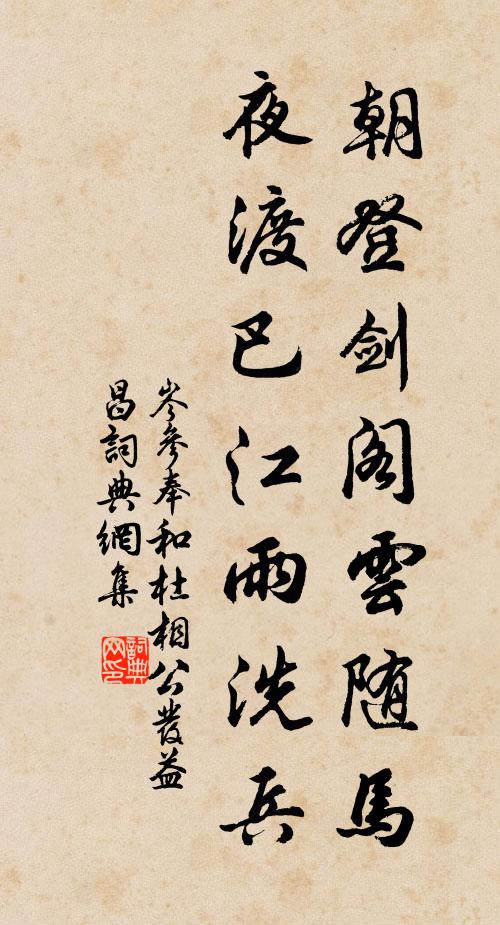 朝登剑阁雲随馬
夜渡巴江雨洗兵
岑參奉和杜相公發益
昌詞典網集
詞典网印